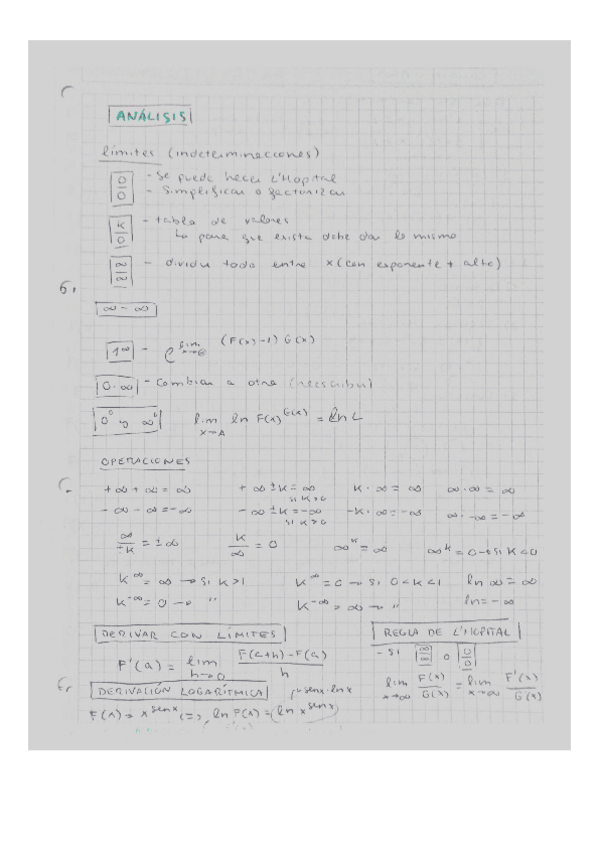 ANÁLISIS
límites (indeterminaciones)
0/0 - Se puede hacer L'Hopital
- Simplificar o factorizar
K/0 - tabla de valores
↳ para que exista debe dar lo mismo
∞/∞ - dividir todo entre x (con exponente + alto)
∞ - ∞
1^∞ - e^lim (F(x)-1) G(x)
0·∞ - Cambiar a otra (reescribir)
0^0 y ∞^0 lim x→A ln F(x)^G(x) = ln L
OPERACIONES
+∞ +∞ = ∞ +∞ ± K = ∞ si K>0 K·∞ = ∞ ∞·∞ = ∞
-∞ -∞ = -∞ -∞ ± K = -∞ si K>0 -K·∞ = -∞ ∞·-∞ = -∞
∞/±K = ±∞ K/∞ = 0 ∞^K = ∞ ∞^K = 0 → si K<0
K^∞ = ∞ → si K>1 K^∞ = 0 → si 0<K<1 ln ∞ = ∞
K^-∞ = 0 → " K^-∞ = ∞ → " ln = -∞
DERIVAR CON LÍMITES REGLA DE L'HOPITAL
F'(a) = lim h→0 F(a+h)-F(a)/h - si ∞/∞ o 0/0
lim x→∞ F(x)/G(x) = lim x→∞ F'(x)/G(x)
DERIVACIÓN LOGARÍTMICA senx·lnx
F(x) = x^senx (=) ln F(x) = ln x^senx